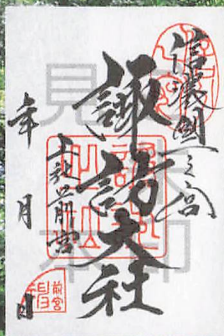 信濃國一之宮
諏訪大社
上社前宮
年 月 日
見本
前宮